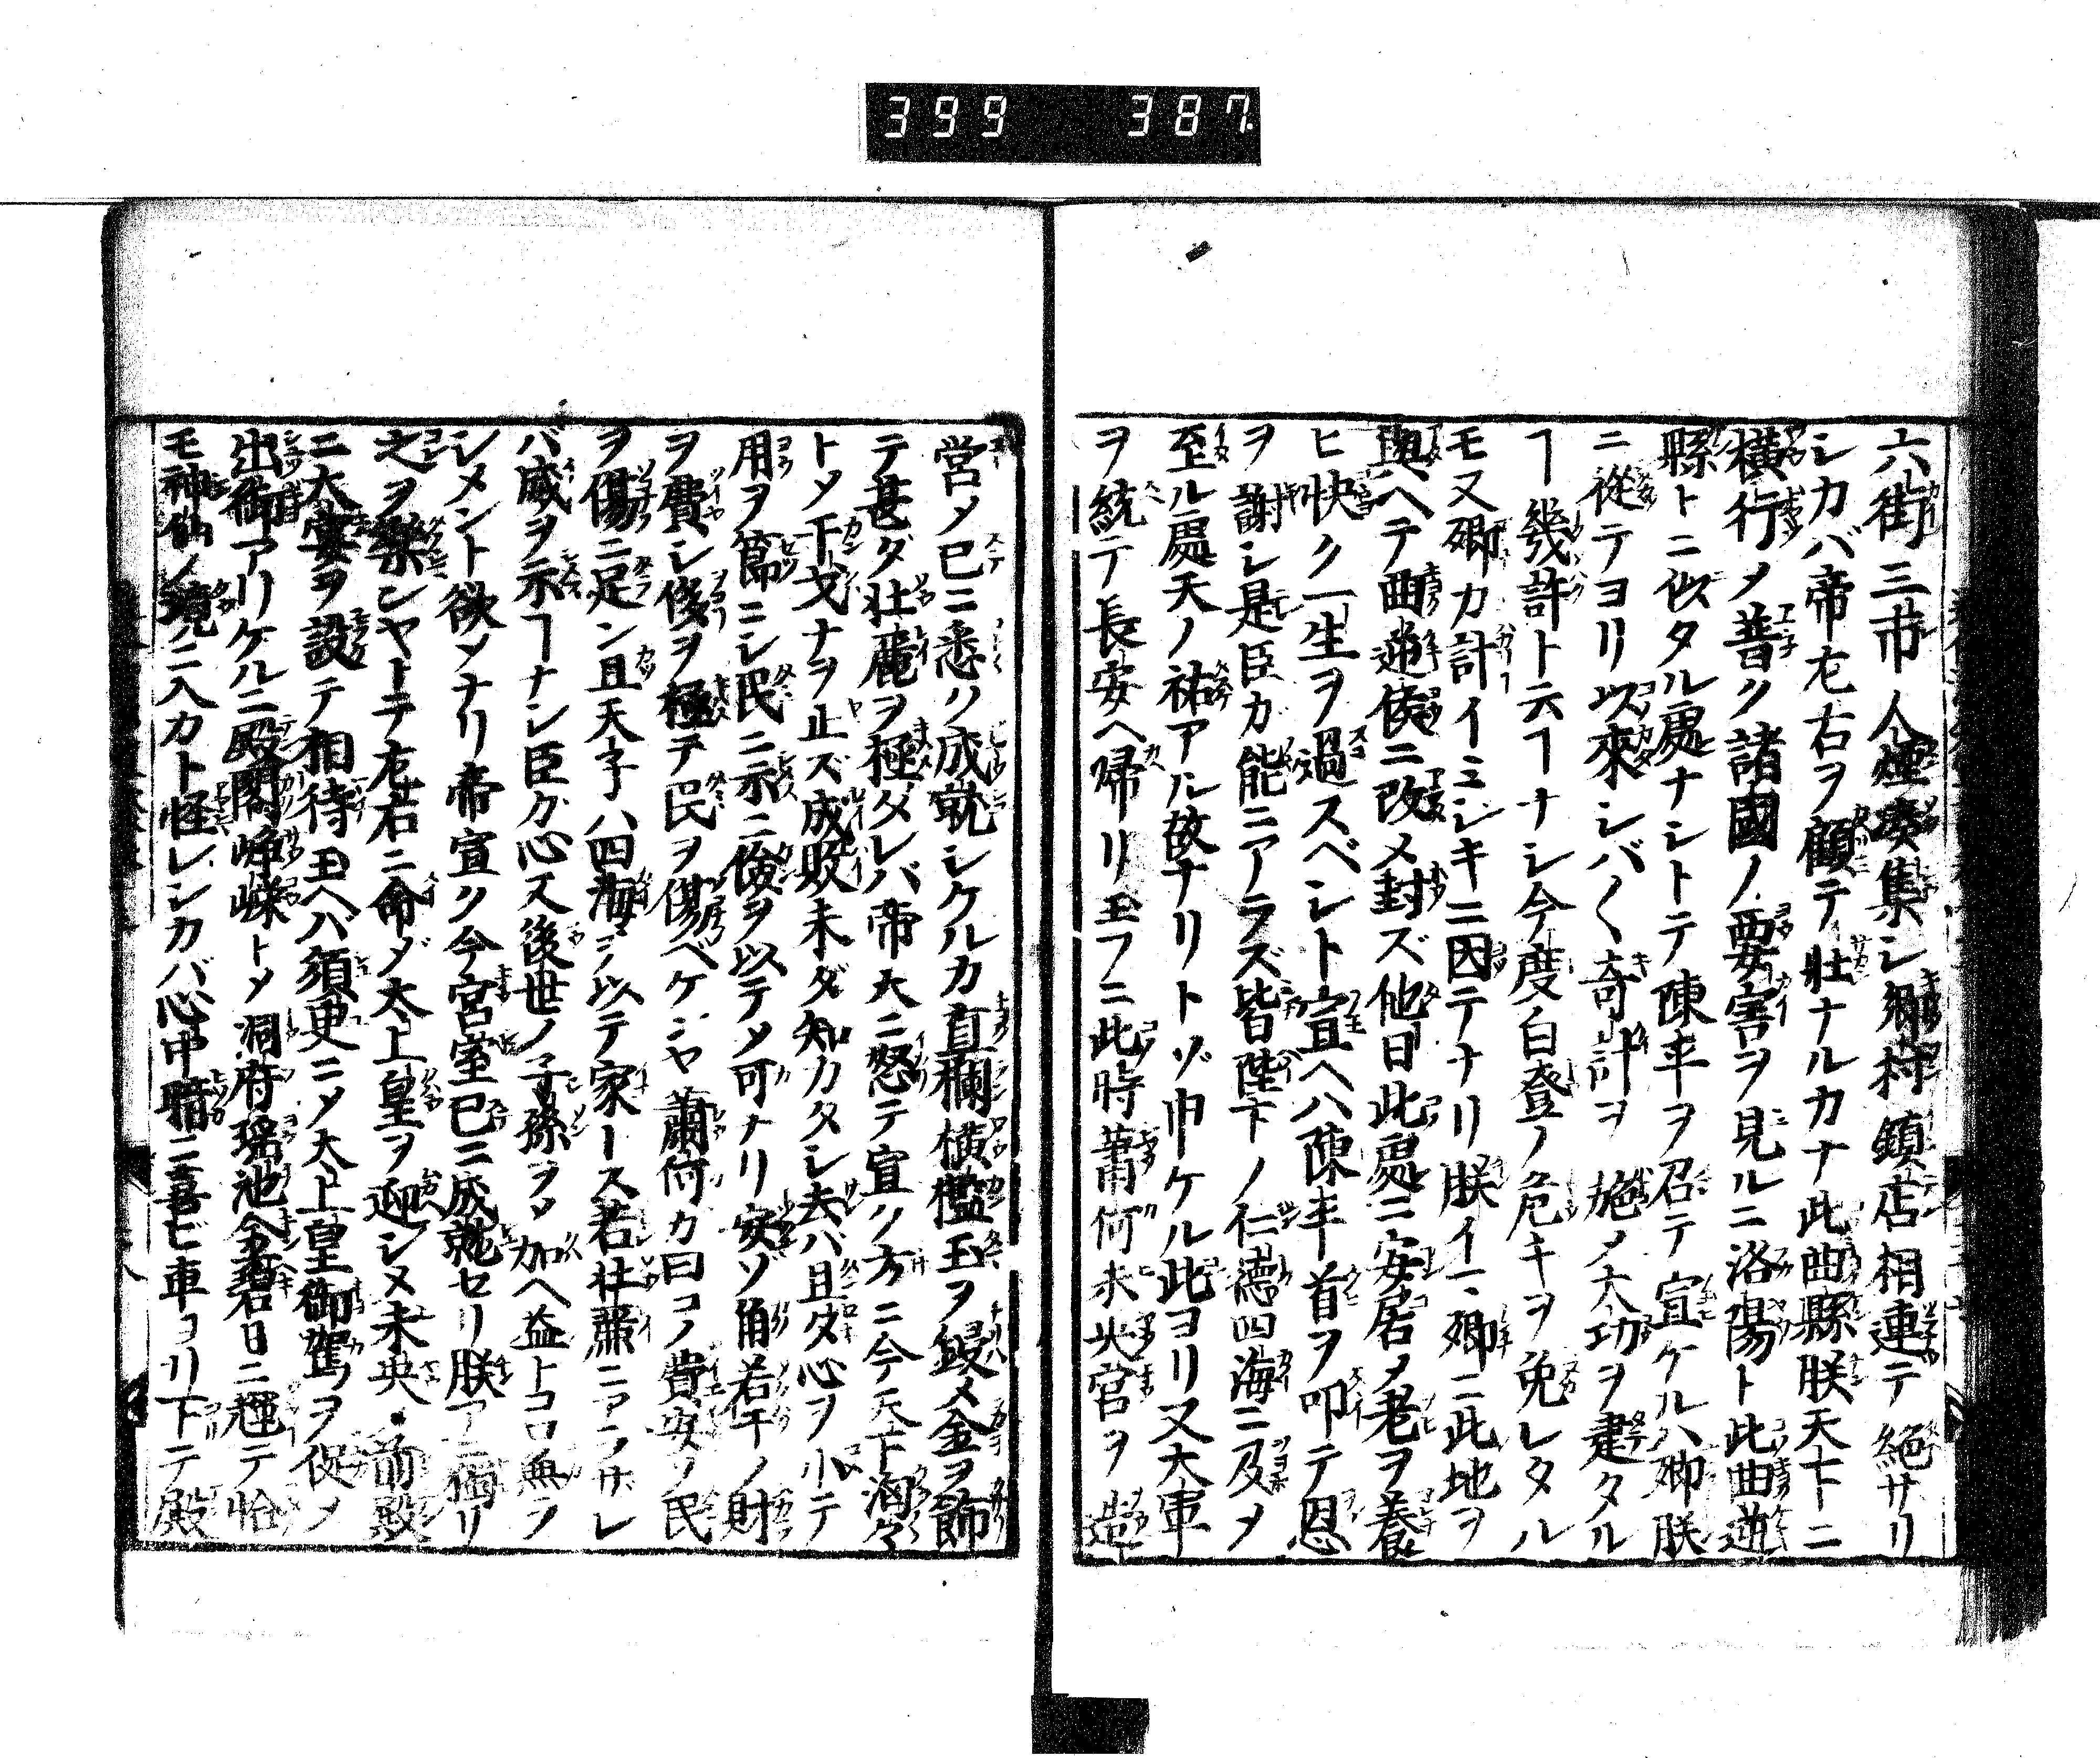 399 387
六街三市人煙湊集シ郷村鎮店相連テ絶サリ
シカバ帝左右ヲ顧テ壮ナルカナ此曲縣朕天下ニ
横行メ普ク諸國ノ要害ヲ見ルニ洛陽ト此曲逆
縣トニ似タル處ナシトテ陳平ヲ召テ宣ケルハ卿朕
ニ從テヨリ以來シバ〱奇計ヲ施メ大功ヲ建タル
ヿ幾許ト云ヿナシ今度白登ノ危キヲ免レタル
モ又卿カ計イミシキニ因テナリ朕イマ卿ニ此地ヲ
與ヘテ曲逆侯ニ改メ封ズ他日此處ニ安居メ老ヲ養
ヒ快ク一生ヲ過スベシト宣ヘハ陳平首ヲ叩テ恩
ヲ謝シ是臣ガ能ニアラズ皆陛下ノ仁德四海ニ及メ
至ル處天ノ祐アル故ナリトゾ申ケル此ヨリ又大軍
ヲ統テ長安ヘ帰リ玉フニ此時蕭何未央宮ヲ造
営メ已ニ悉ク成就シケルカ直欄横檻玉ヲ鏤メ金ヲ飾
テ甚ダ壮麗ヲ極タレバ帝大ニ怒テ宣ク方ニ今天下洶々
トメ干戈ナヲ止ズ成敗未ダ知カタシ夫バ且ク心ヲ小テ
用ヲ節ニシ民ニ示ニ儉ヲ以テメ可ナリ安ゾ角若干ノ財
ヲ費シ後ヲ極テ民ヲ傷ベケンヤ蕭何カ曰コノ費安ソ民
ヲ傷ニ足ン且天子ハ四海ヲ以テ家トス若壮麗ニアラザレ
バ威ヲ示ヿナシ臣ガ心又後世ノ子孫ヲメ加ヘ益トコロ無ラ
シメント欲メナリ帝宣ク今宮室已ニ成就セリ朕アニ獨リ
之ヲ樂シヤトテ左右ニ命ダ太上皇ヲ迎シメ未央ノ前殿
ニ大宴ヲ設テ相待玉ヘバ須臾ニメ太上皇御駕ヲ促メ
出御アリケルニ殿閣崢嶸トメ洞府瑤池金碧日ニ輝テ恰
モ神仙ノ境ニ入カト怪レシカバ心中暗ニ喜ビ車ヨリ下テ殿